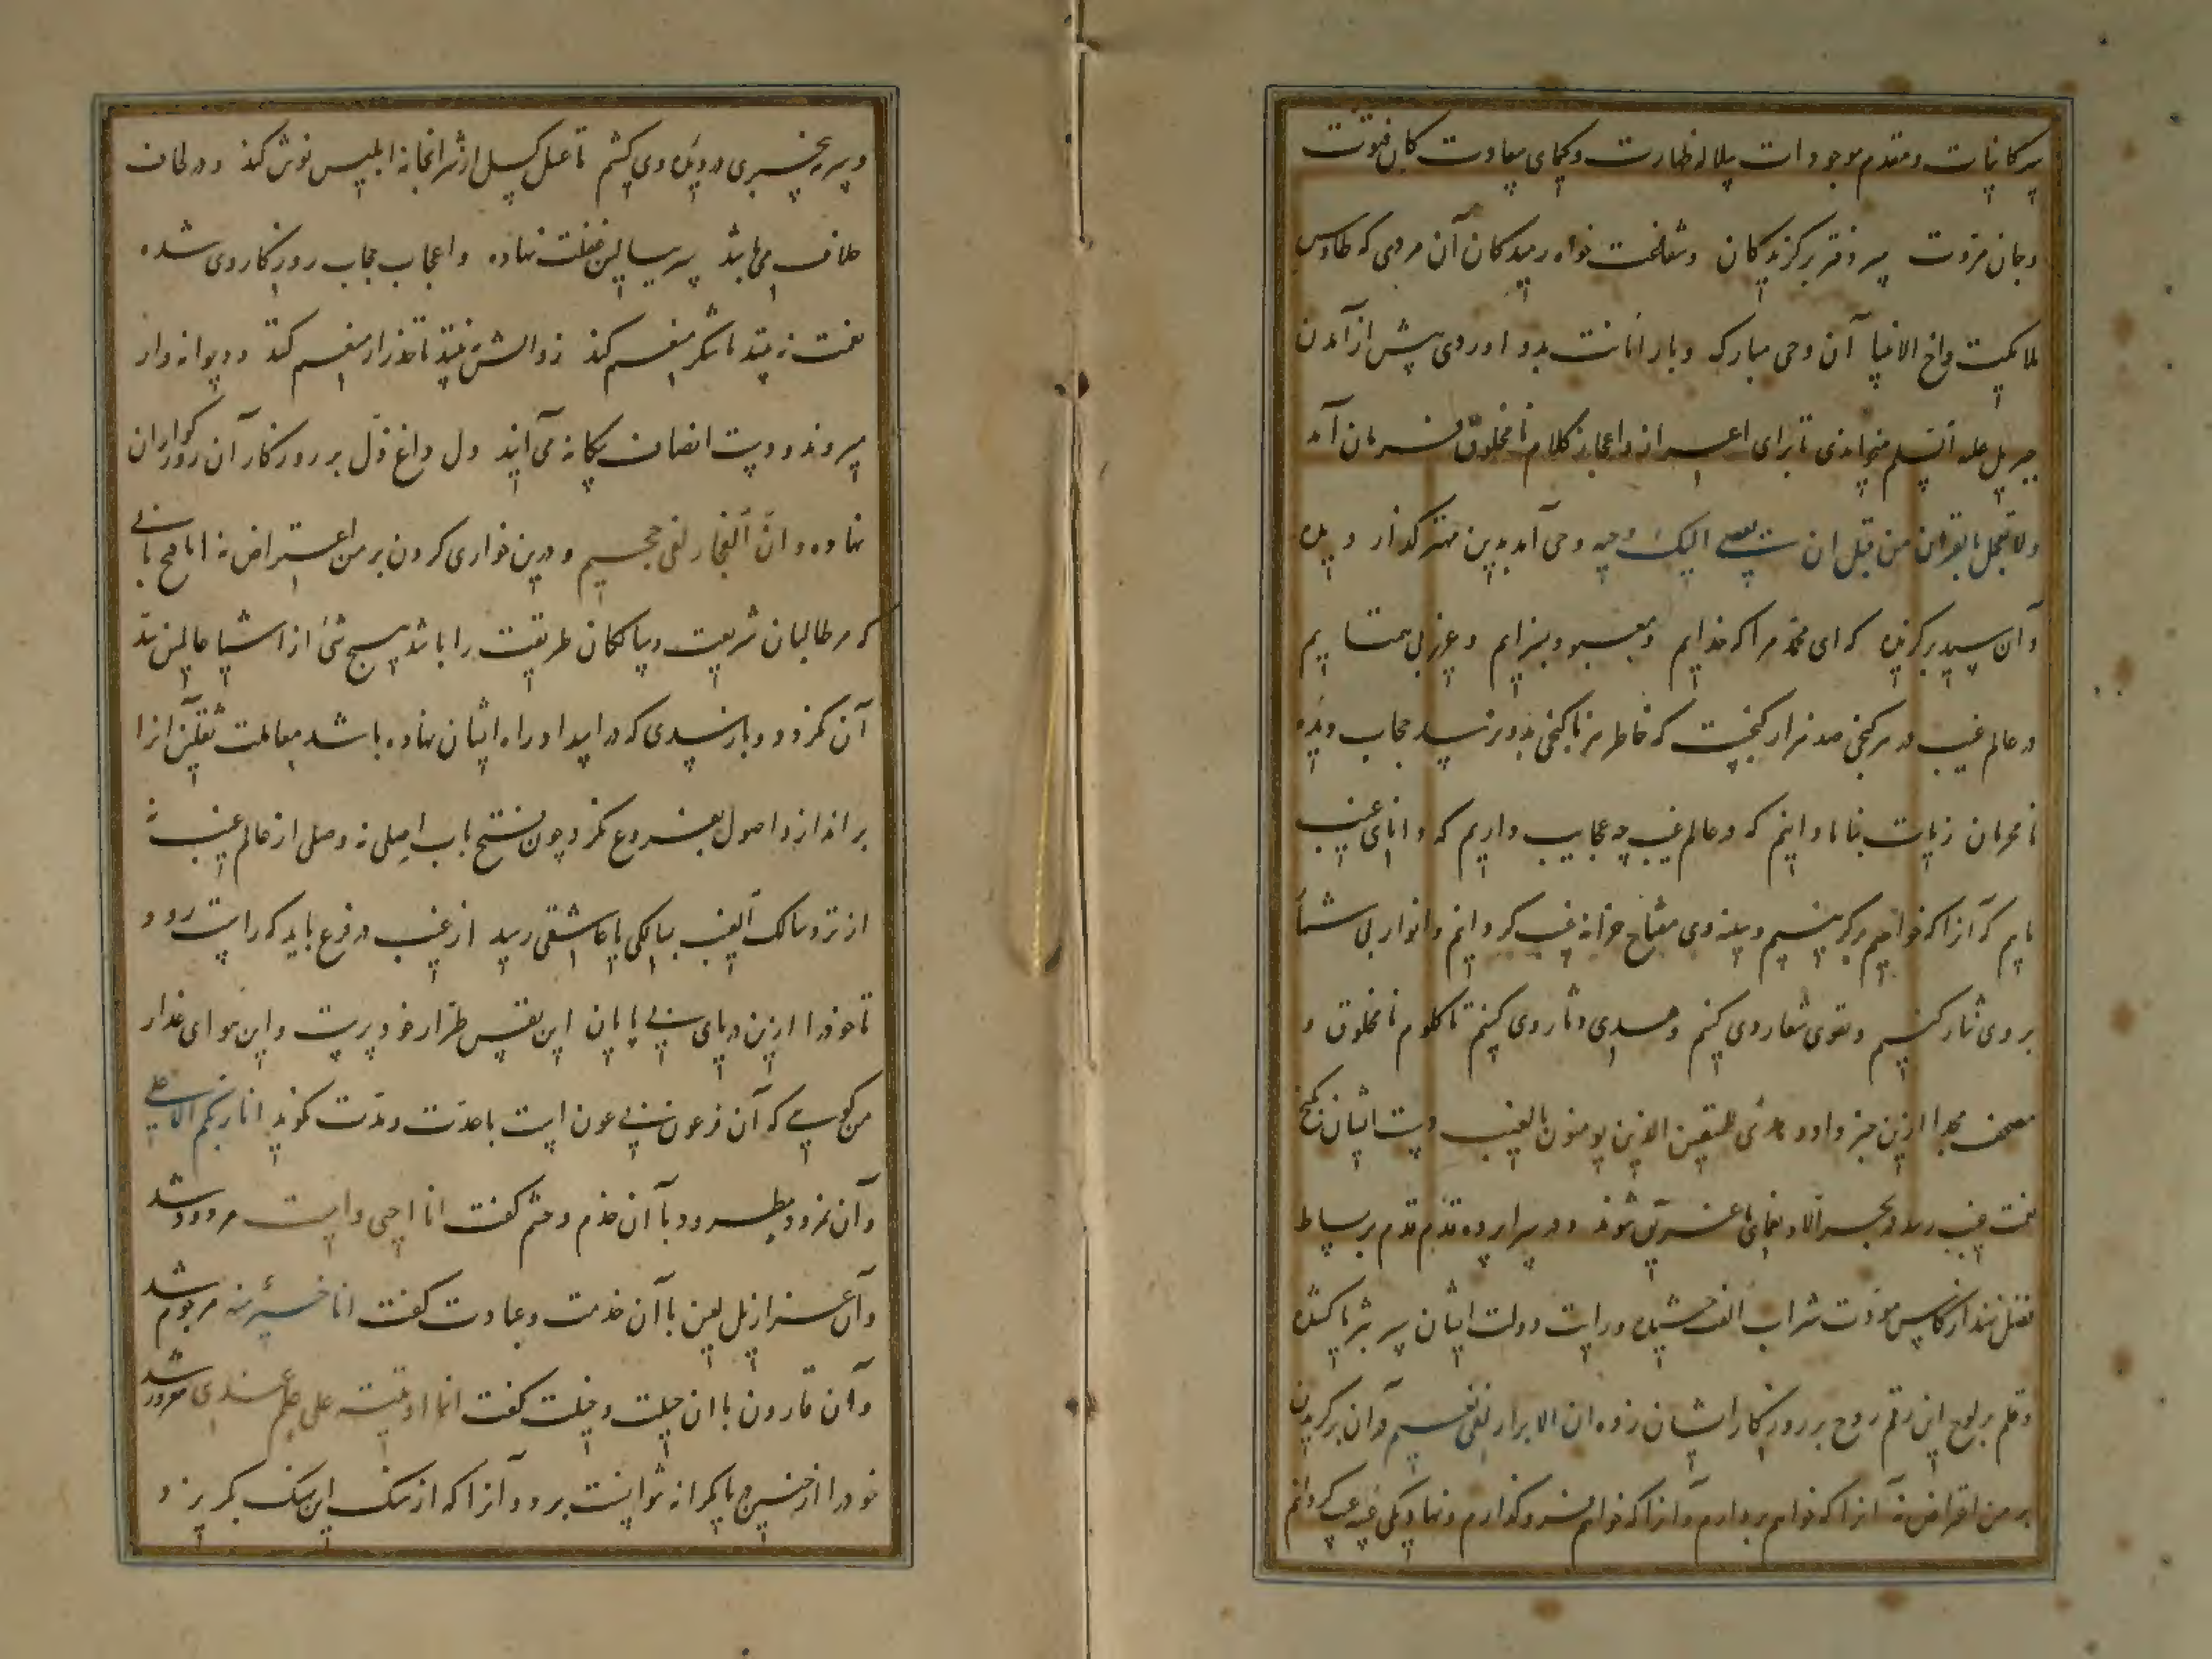 سر کاینات و مقدم موجودات سلاله طهارت و کیمیای سعادت کان فتوت
و جان مروت سر دفتر برگزیدگان و شفاعت خواه رمیدگان آن مردی که طاوس
ملایکه و اخ الانبیا آن وحی مبارک و بار امانت بدو آوردی پیش از آمدن
جبریل علیه السلم میخواندی تا برای اعزاز و اعجاز کلام نا مخلوق فرمان آمد
ولا تعجل بالقران من قبل ان یقضی الیک وحیه وحی آمد بدین مهتر
و آن سید برگزیده که ای محمد مرا که خدایم و معبود بسزایم و عزیز بی همتایم
در عالم غیب در هر کنجی صد هزار گنجست که خاطر هر ناکجی بدو نرسد حجاب دیده
نا محرمان زیادت بنا ما دانیم که در عالم غیب چه عجایب داریم که دانای غیب
ماییم که آنرا که خواهیم برگزینیم و سینه وی مفتاح خزانه غیب گردانیم و انوار بی شما
بر وی نثار کنیم و تقوی شعار وی کنیم و هدی دثار وی کنیم تا کلام نا مخلوق و
مصحف مجد ازین خبر داد و هدی للمتقین الذین یومنون بالغیب دست ایشان بگنج
نعمت غیب رسد در بحر آلا و نعمای ما غریق شوند و در سراپرده قدم قدم بر بساط
فضل نهند از کاس مودت شراب الفت چشیده و رایت دولت ایشان سر بثریا کشیده
و قلم بر لوح این رقم روح بر روزگار ایشان زده ان الابرار لفی نعیم و آن برگزیدن
بر من اقتراض نه آنرا که خواهم بردارم و آنرا که خواهم فرو گذارم و نهاد یکی غیبه عیب گردانم
و سرمه بیخبری در دیده وی کشم تا عسل کسل از شرابخانه ابلیس نوش کند و در لحاف
خلاف می باشد سر ببالین غفلت نهاده و اعجاب حجاب روزگار وی شده
نعمت نه بیند تا شکر منعم کند زوالش نه بیند تا حذر از منعم کند و دیوانه وار
میروند و دست انصاف بیگانه می آیند دل داغ ذل بر روزگار آن روزکواران
نهاده و ان الفجار لفی جحیم و درین خواری کردن بر من اعتراض نه اما هیچ بابی
که مر طالبان شریعت و سالکان طریقت را باشد هیچ شی از اشیا حایلتر
آن نکرد و و بار سدی که در ابدا در راه ایشان نهاده باشد بمعاملت ثقلین آنرا
بر اندازد اصول بفروع نگردد چون مفتح باب اصلی نه وصلی از عالم غیب نه
از تر و سالک الغیب بسالکی یا عاشقی رسد از غیب در فرع باید که راست رود
تا خود را ازین دریای بی پایان این نفس طرار خود پرست و این هوای غدار
من گوی که آن فرعون بی عون است با حدت و مدت گوید انا ربکم الاعلی
و آن نمرود مطرود با آن خدم و حشم گفت انا احیی و امیت مردود شد
و آن عزازیل لعین با آن خدمت و عبادت گفت انا خیر منه مرجوم شد
و آن قارون با ان حیلت و خیلت گفت انما اوتیته علی علم عندی مغرور شد
خود را از خسرج با کرانه توانست برد و آنرا که از سک این سک بگریزد